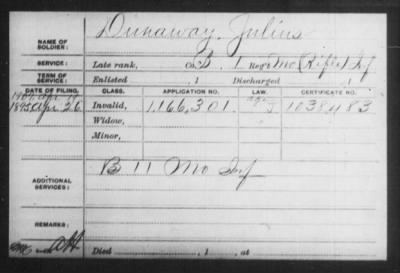 NAME OF SOLDIER: Dunaway, Julius
SERVICE: Late rank, Co. B, 1 Reg't Mo (Rifle) Inf
TERM OF SERVICE: Enlisted , 1 Discharged , 1
DATE OF FILING. CLASS. APPLICATION NO. LAW. CERTIFICATE NO.
1895 Apr 26 Invalid, 1,166,301 J 1038483
Widow,
Minor,
ADDITIONAL SERVICES: B 11 Mo Inf
REMARKS:
Died , 1 , at